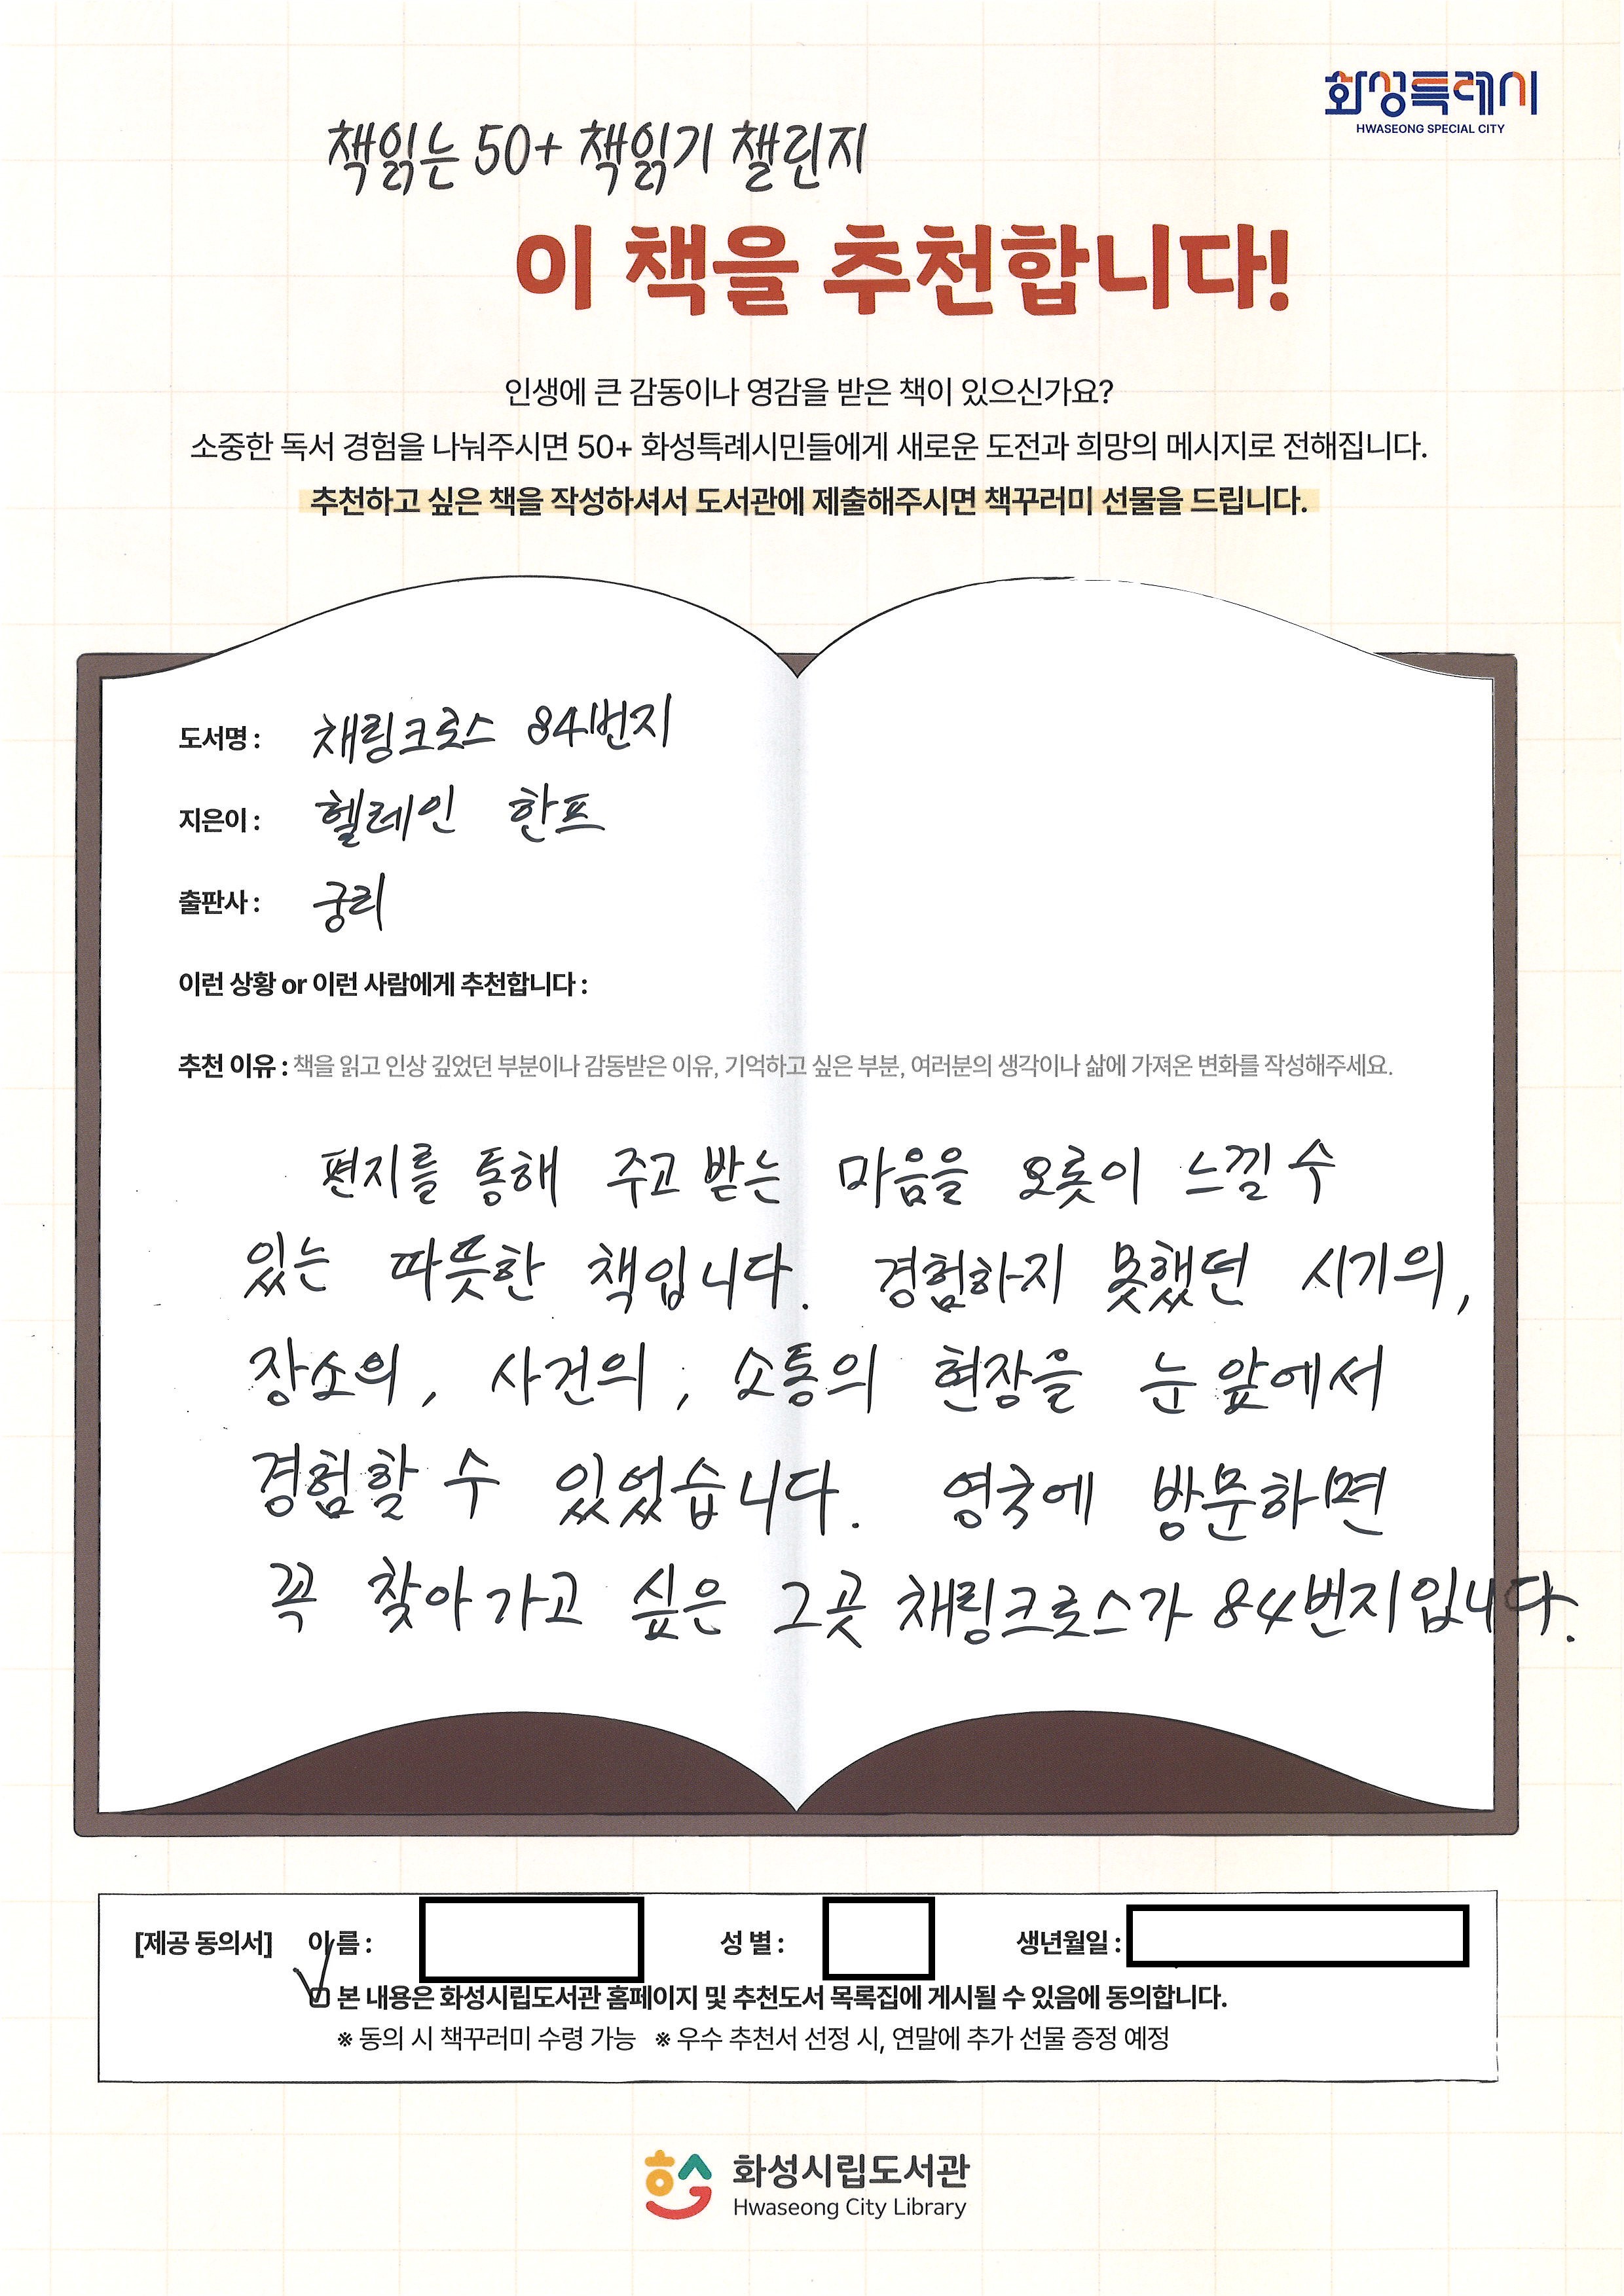 화성특례시
HWASEONG SPECIAL CITY
책읽는 50+ 책읽기 챌린지
이 책을 추천합니다!
인생에 큰 감동이나 영감을 받은 책이 있으신가요?
소중한 독서 경험을 나눠주시면 50+ 화성특례시민들에게 새로운 도전과 희망의 메시지로 전해집니다.
추천하고 싶은 책을 작성하셔서 도서관에 제출해주시면 책꾸러미 선물을 드립니다.
도서명 : 채링크로스 84번지
지은이 : 헬레인 한프
출판사 : 궁리
이런 상황 or 이런 사람에게 추천합니다 :
추천 이유 : 책을 읽고 인상 깊었던 부분이나 감동받은 이유, 기억하고 싶은 부분, 여러분의 생각이나 삶에 가져온 변화를 작성해주세요.
편지를 통해 주고 받는 마음을 오롯이 느낄 수
있는 따뜻한 책입니다. 경험하지 못했던 시기의,
장소의, 사건의, 소통의 현장을 눈 앞에서
경험할 수 있었습니다. 영국에 방문하면
꼭 찾아가고 싶은 그곳 채링크로스가 84번지입니다.
[제공 동의서] 이름 : 성 별 : 생년월일 :
본 내용은 화성시립도서관 홈페이지 및 추천도서 목록집에 게시될 수 있음에 동의합니다.
※ 동의 시 책꾸러미 수령 가능 ※ 우수 추천서 선정 시, 연말에 추가 선물 증정 예정
화성시립도서관
Hwaseong City Library